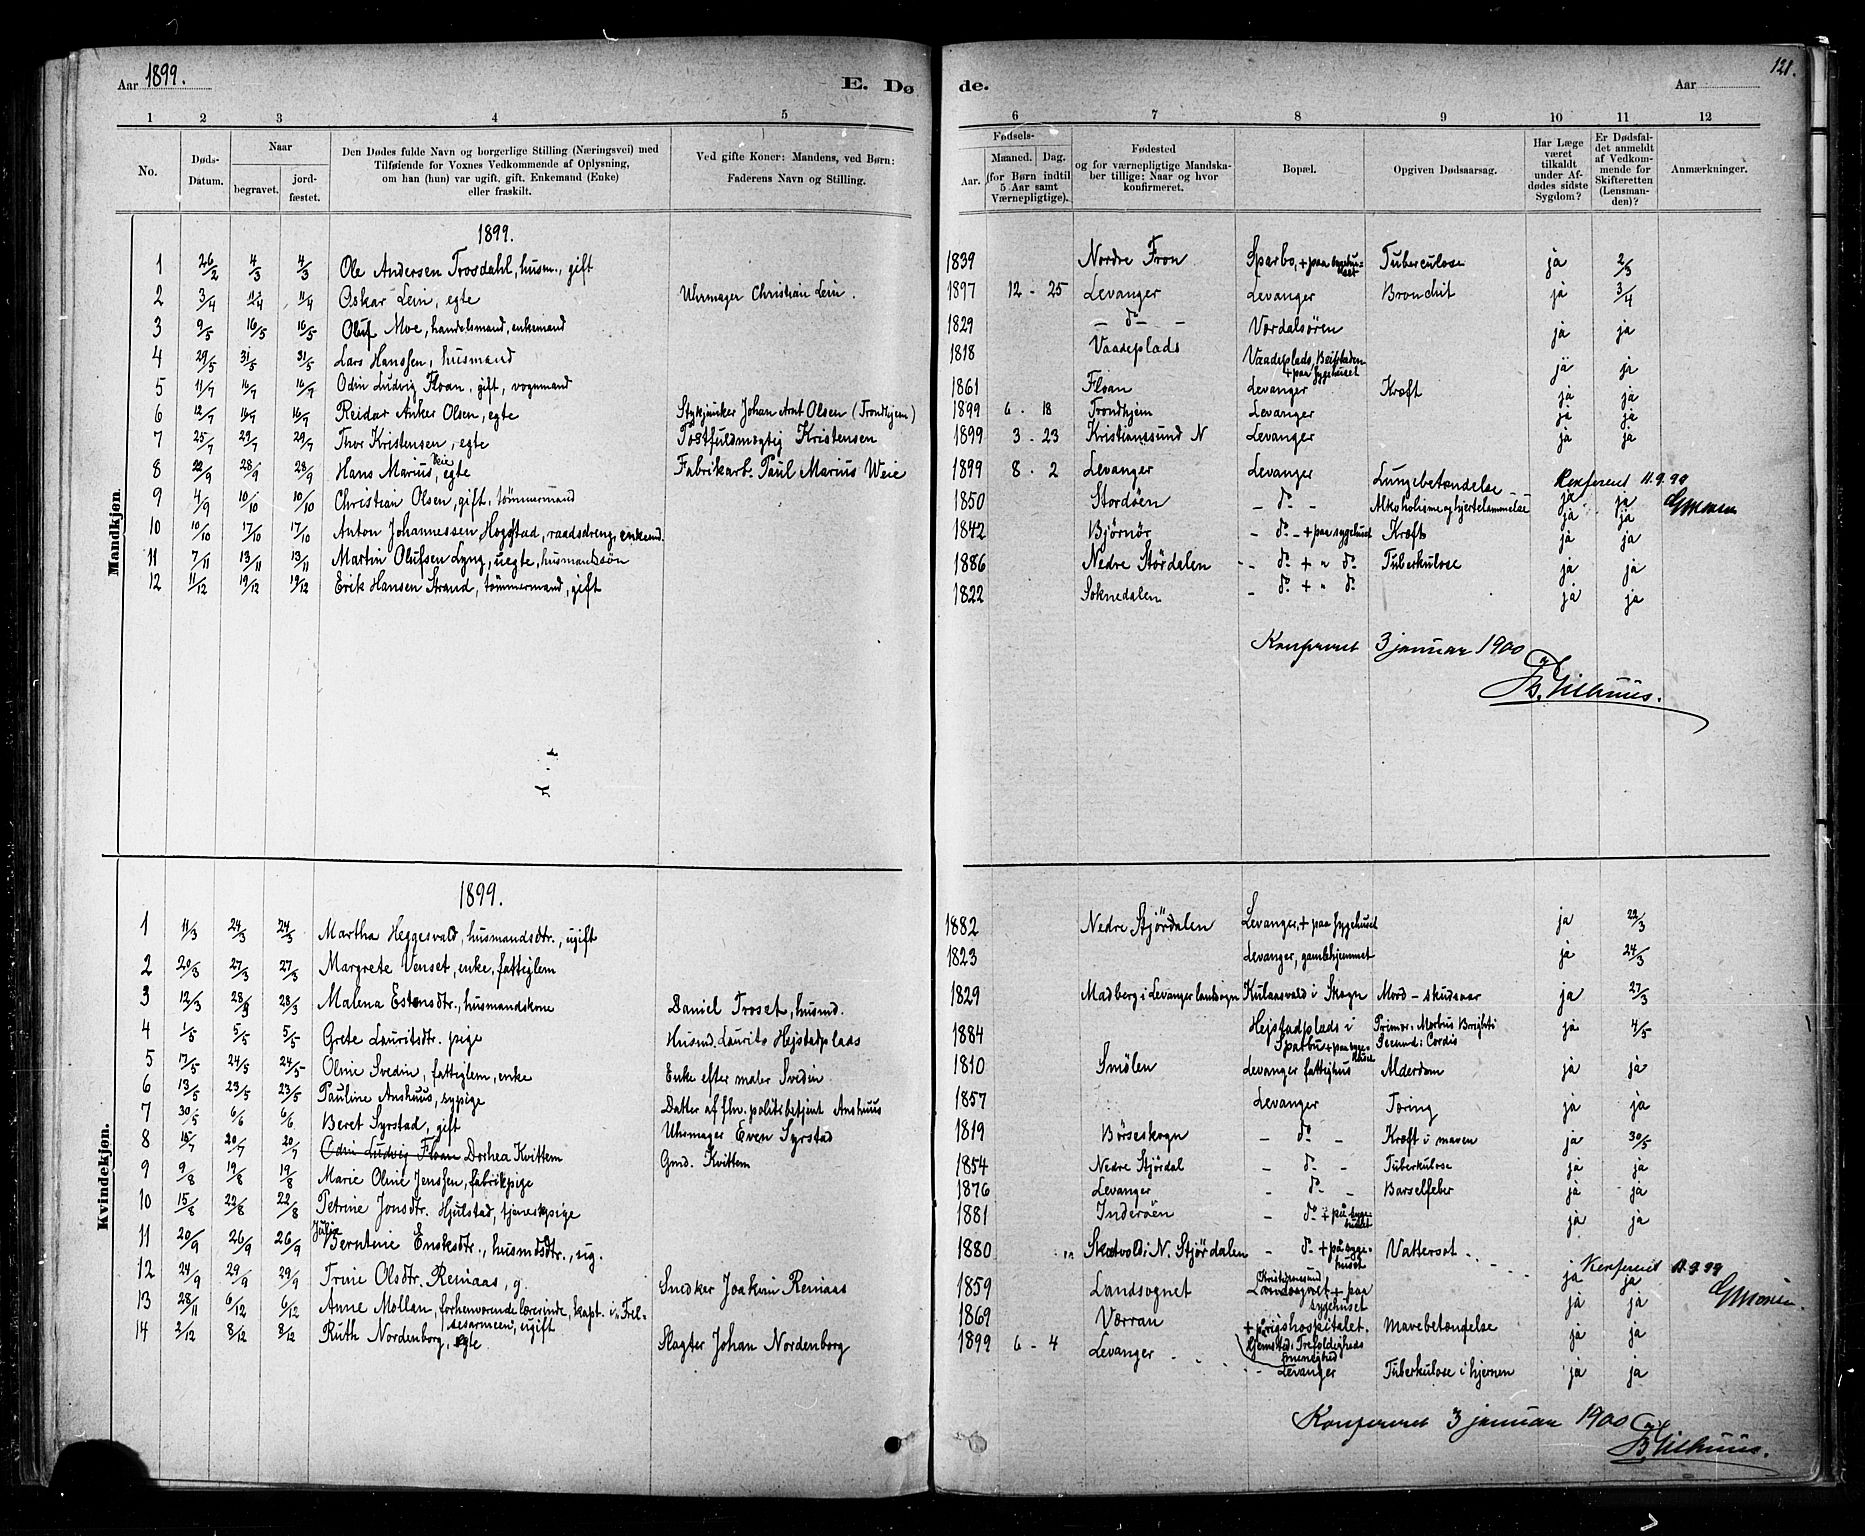 Aar 1899.
E. Dø
de.
Aar
121.
1 2 3 4 5 6 7 8 9 10 11 12
No.
Døds-Datum.
Naar
begravet.
jord-fæstet.
Den Dødes fulde Navn og borgerlige Stilling (Næringsvei) med
Tilføiende for Voxnes Vedkommende af Oplysning,
om han (hun) var ugift, gift, Enkemand (Enke)
eller fraskilt.
Ved gifte Koner: Mandens, ved Børn:
Faderens Navn og Stilling.
Fødsels-
Aar.
Maaned. Dag.
(for Børn indtil
5 Aar samt
Værnepligtige).
Fødested
og for værnepligtige Mandska-
ber tillige: Naar og hvor
konfirmeret.
Bopæl.
Opgiven Dødsaarsag.
Har Læge
været
tilkaldt
under Af-
dødes sidste
Sygdom?
Er Dødsfal-
det anmeldt
af Vedkom-
mende for
Skifteretten
(Lensman-
den)?
Anmærkninger.
Mandkjøn.
1899.
1 26/2 4/3 4/3 Ole Andersen Trosdahl, husm., gift 1839 Nordre Fron Sparbo, + paa sygehuset Tuberculose ja 2/3
2 3/4 11/4 11/4 Oskar Lein, egte Uhrmager Christian Lein. 1897 12 - 25 Levanger Levanger Bronchit ja 3/4
3 9/5 16/5 16/5 Oluf Moe, handelsmand, enkemand 1829 - do - Værdalsøren ja ja
4 29/5 31/5 31/5 Lars Hanssen, husmand 1818 Vaadeplads Vaadeplads, Beitstaden + paa sygehuset ja ja
5 11/7 16/7 16/7 Odin Ludvig Floan, gift, vognmand 1861 Floan Levanger Kræft ja ja
6 12/7 16/7 16/7 Reidar Anker Olsen, egte Stykjunker Johan Arnt Olsen (Trondhjem) 1899 6 - 18 Trondhjem Levanger ja ja
7 25/7 29/7 29/7 Thor Kristensen, egte Postfuldmægtig Kristensen 1899 3 - 23 Kristianssund N Levanger ja ja
8 22/9 28/9 28/9 Hans Marius Weie, egte Fabrikarb. Paul Marius Weie 1899 8 - 2 Levanger Levanger Lungebetændelse
Konfereret 11.9.99
9 4/9 10/10 10/10 Christian Olsen, gift, tømmermand 1850 Stordøen - do - Alkoholisme og hjertelammelse ja ja
10 10/10 17/10 17/10 Anton Johannessen Hogstad, raadsdreng, enkemd. 1842 Bjørnør - do - + paa sygehuset Kræft ja ja
11 7/11 13/11 13/11 Martin Olufsen Lyng, uegte, husmandssøn 1886 Nedre Stördalen - do + " do Tuberkulose ja ja
12 11/12 19/12 19/12 Erik Hansen Strand, tømmermand, gift 1822 Soknedalen - do + " do ja ja
Konfereret 3 januar 1900
Kvindekjøn.
1899.
1 11/3 24/3 24/3 Martha Heggesvald, husmandsdtr., ugift 1882 Nedre Stjördalen Levanger, + paa sygehuset ja 22/3
2 20/3 27/3 27/3 Margrete Venset, enke, fattiglem 1823 Levanger, gamlehjemmet ja 24/3
3 12/3 28/3 28/3 Malena Estensdtr., husmandskone Daniel Troset, husmd. 1829 Madberg i Levanger landsogn Kulaasvald i Skogn Mord - skudsaar ja 27/3
4 1/5 5/5 5/5 Grete Lauritsdtr. pige Husmd. Laurits Hejstadplads 1884 Hejstadplads i Sparbu + paa sygehuset Primær: Morbus Brighti Secund: Cordis ja 4/5
5 17/5 24/5 24/5 Oline Svedin, fattiglem, enke Enke efter maler Svedin 1810 Smölen Levanger fattighus Alderdom ja ja
6 13/5 23/5 23/5 Pauline Aushuus, sypige Datter af fhv. politibetjent Aushuus 1857 Levanger Tæring ja ja
7 30/5 6/6 6/6 Beret Syrstad, gift Uhrmager Even Syrstad 1819 Börseskogn - do - Kræft i maven ja 30/5
8 15/7 20/7 20/7 Odin Ludvig Floan Dorhea Kvittem Gmd. Kvittem 1854 Nedre Stjördal - do - Tuberkulose ja ja
9 9/8 19/8 19/8 Marie Oline Jenssen, fabrikpige 1876 Levanger - do - Barselfeber ja ja
10 15/8 22/8 22/8 Petrine Jonsdtr. Hjulstad, tjenestpige 1881 Inderöen - do + på sygehuset ja ja
11 20/9 26/9 26/9 Julie Berntine Eriksdtr., husmdsdtr., ug. 1880 Skatvold i N. Stjördalen - do + på sygehuset Vattersot
Konfereret 11.9.99
12 24/9 29/9 29/9 Trine Olsdtr. Reniaas, g. Snedker Joakim Reniaas 1859 Landsognet Kristiansund Landsognet + paa sygehuset ja ja
13 28/11 6/12 6/12 Anne Mollan, forhenværende lærerinde, kapt. i Frel-
sesarmeen, ugift 1869 Værran + rigshospitalet. Hjemsted: Trefoldigheds menighed Mavebetændelse ja ja
14 2/12 8/12 8/12 Ruth Nordenborg, egte Slagter Johan Nordenborg 1899 6 - 4 Levanger Levanger Tuberkulose i hjernen ja ja
Konfereret 3 januar 1900